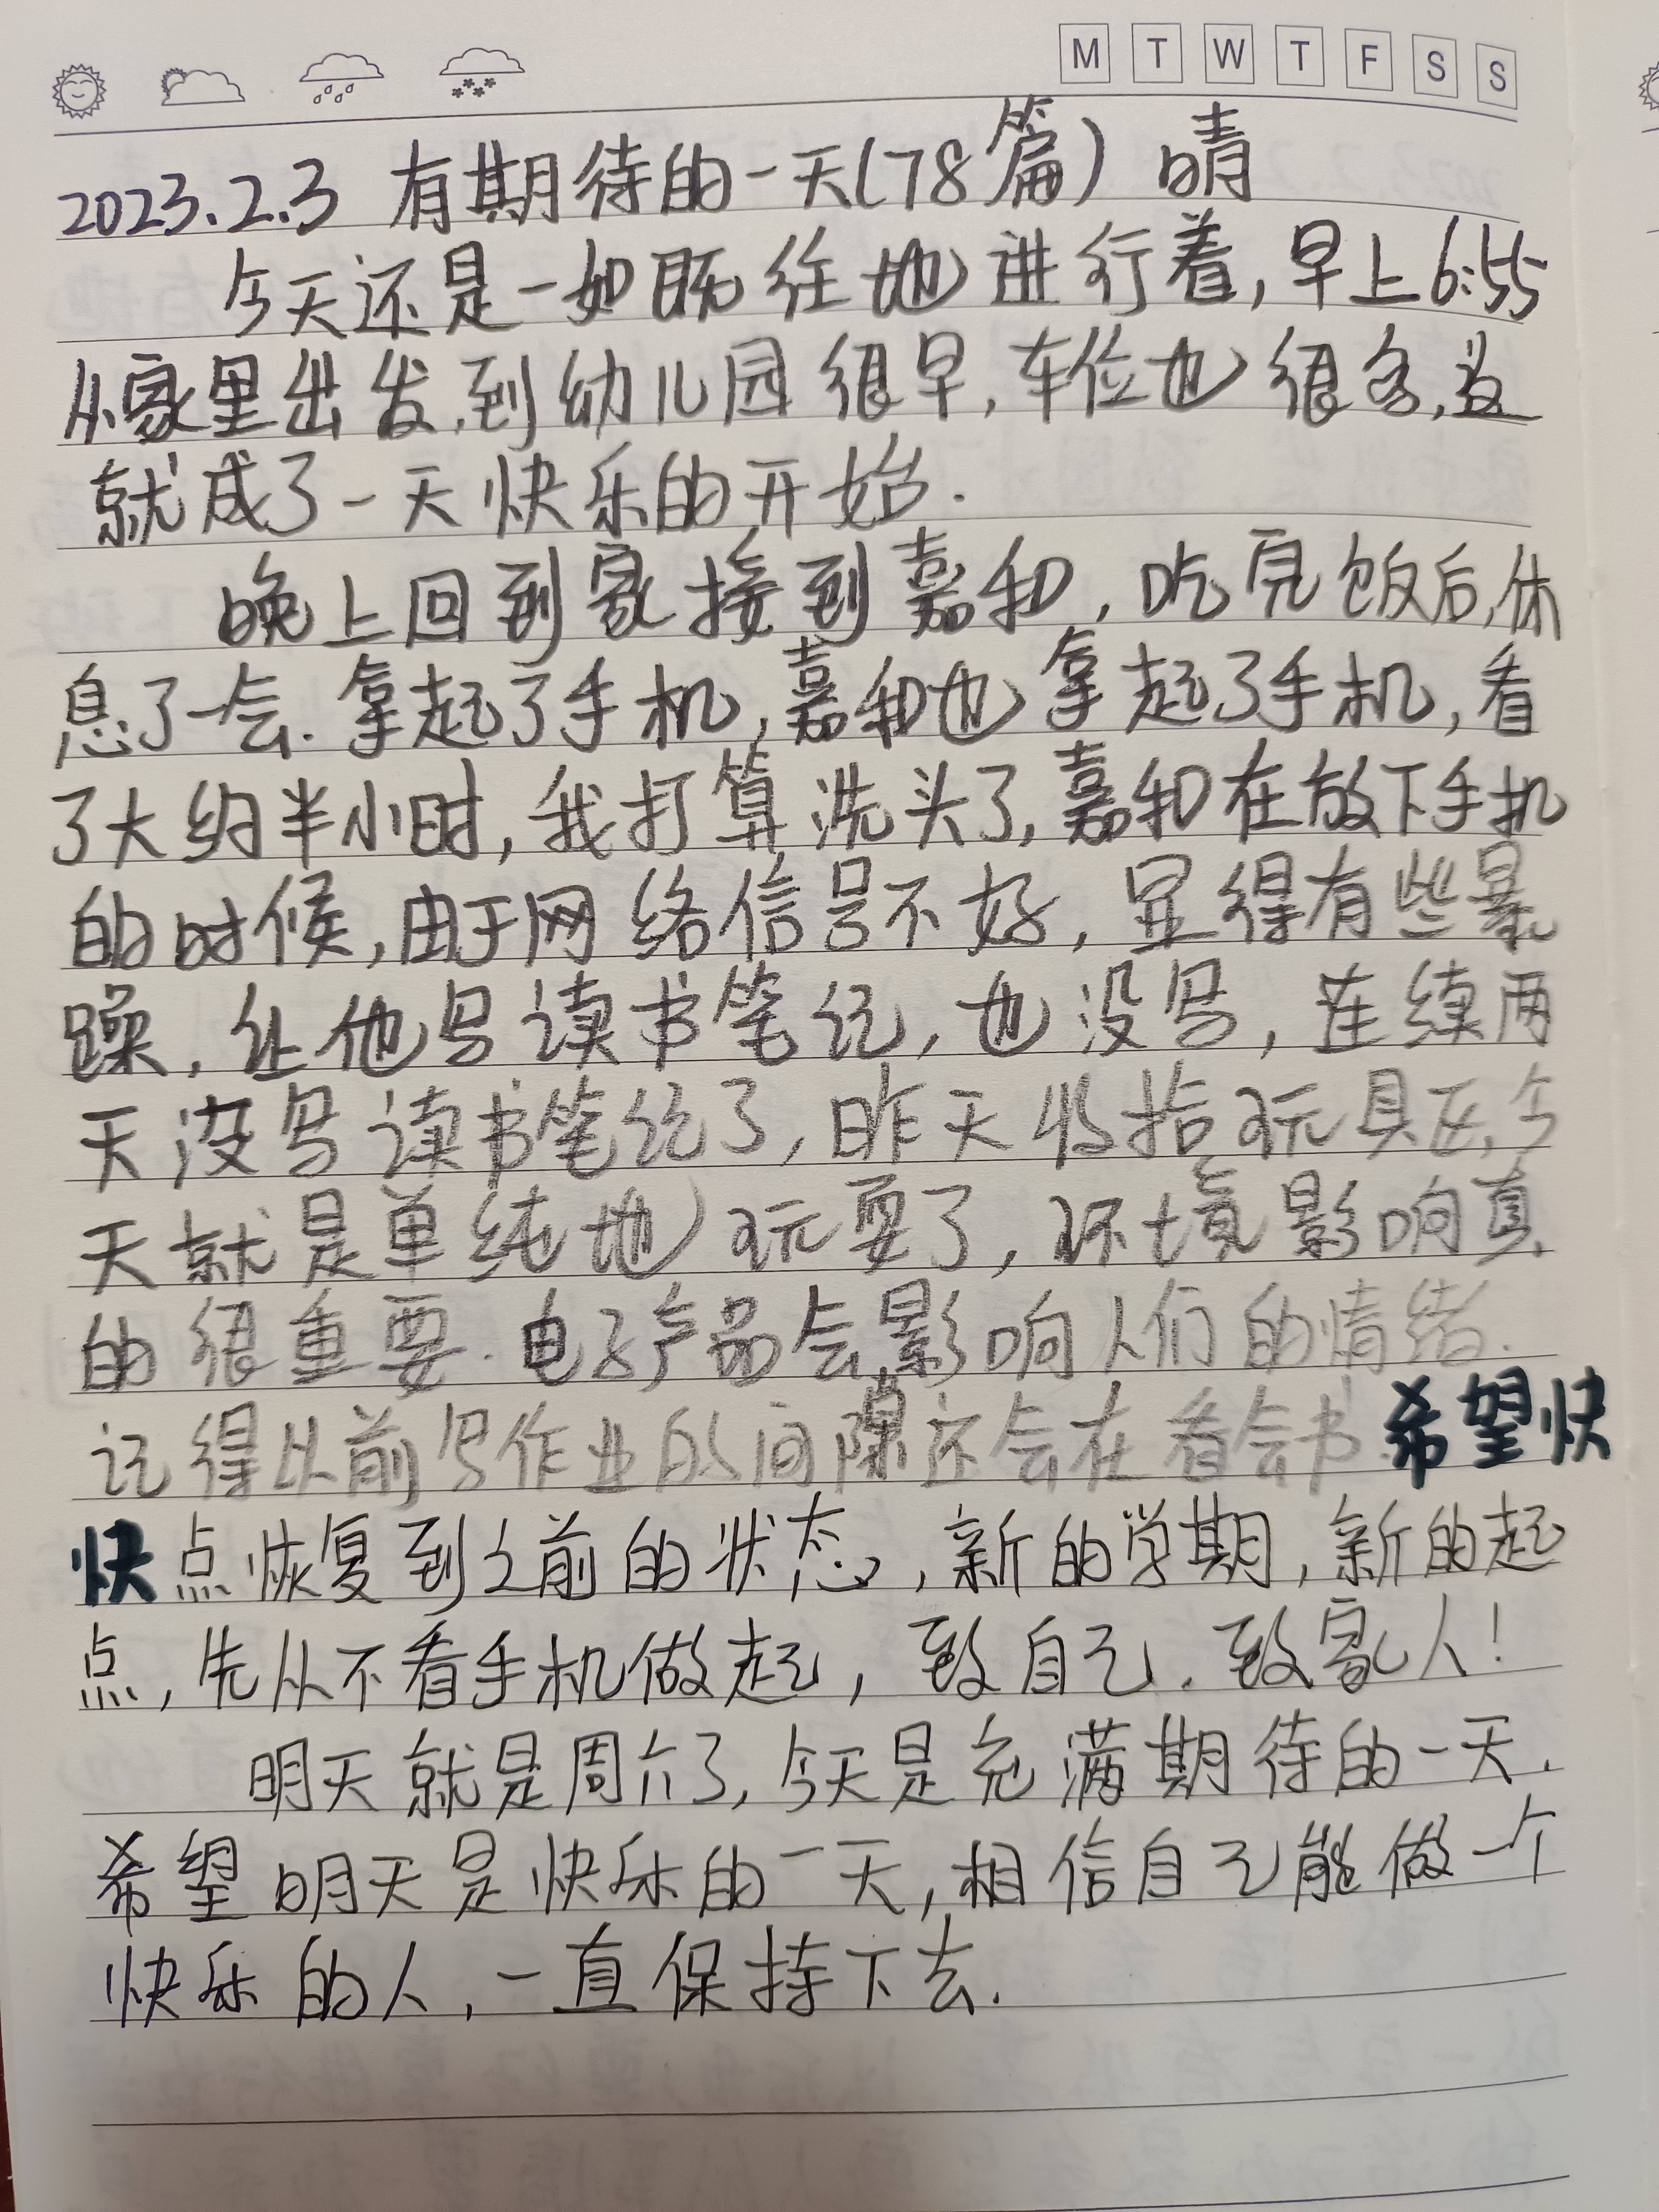 M T W T F S S
2023.2.3 有期待的一天(78篇) 晴
今天还是一如既往地进行着,早上6:55
从家里出发,到幼儿园很早,车位也很多,这
就成了一天快乐的开始.
晚上回到家接到嘉和,吃完饭后,休
息了一会.拿起了手机,嘉和也拿起了手机,看
了大约半小时,我打算洗头了,嘉和在放下手机
的时候,由于网络信号不好,显得有些暴
躁,让他写读书笔记,也没写,连续两
天没写读书笔记了,昨天收拾玩具区,今
天就是单纯地玩耍了,环境影响真
的很重要.电子产品会影响人们的情绪.
记得以前写作业的间隙还会在看会书.希望快
快点恢复到之前的状态,新的学期,新的起
点,先从不看手机做起,致自己.致家人!
明天就是周六了,今天是充满期待的一天.
希望明天是快乐的一天,相信自己能做一个
快乐的人,一直保持下去.